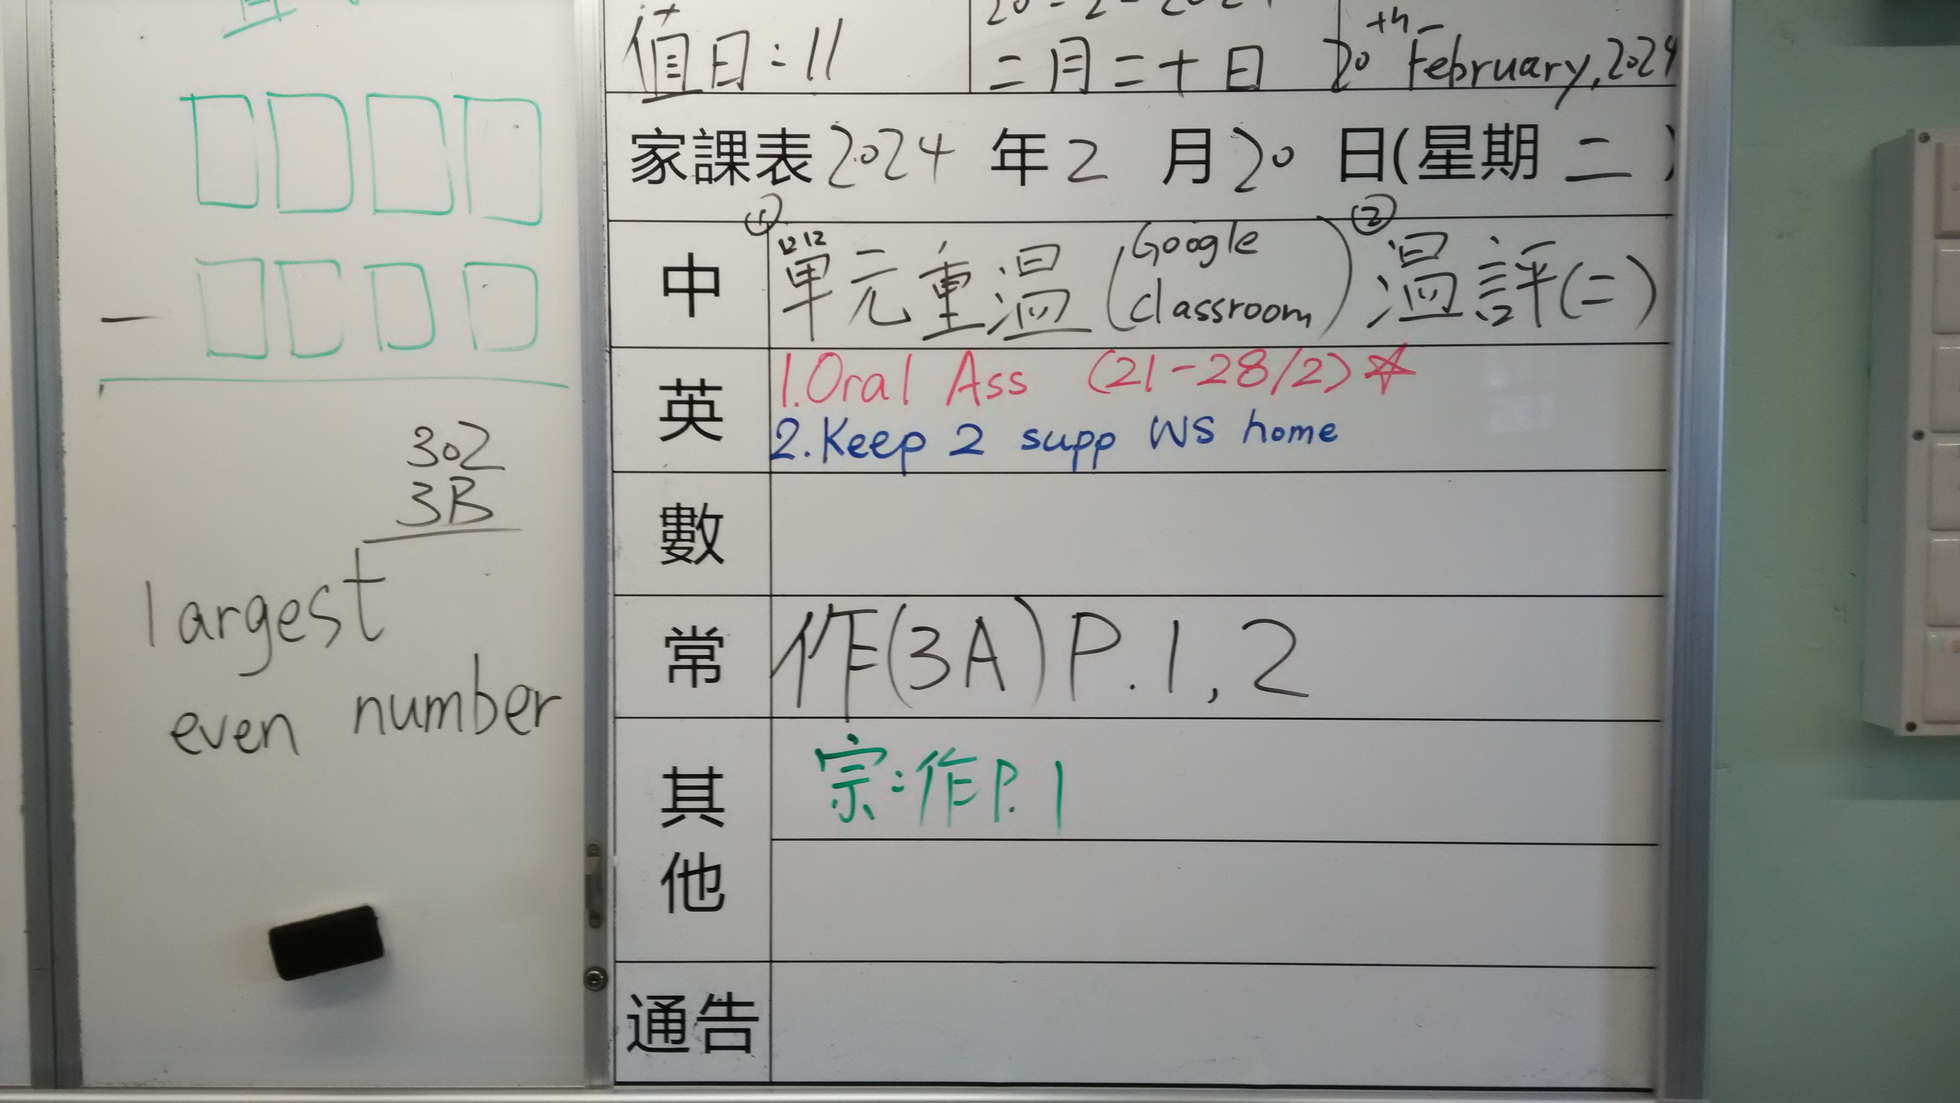 302
3B
largest
even number
值日：11
二月二十日
20th February, 2024
家課表 2024 年 2 月 20 日(星期 二 )
中 ① 單元重溫 (Google classroom) ② 溫評(二)
英 1. Oral Ass (21-28/2) ☆
2. Keep 2 supp WS home
數
常 作(3A) P.1, 2
其他 宗：作P.1
通告